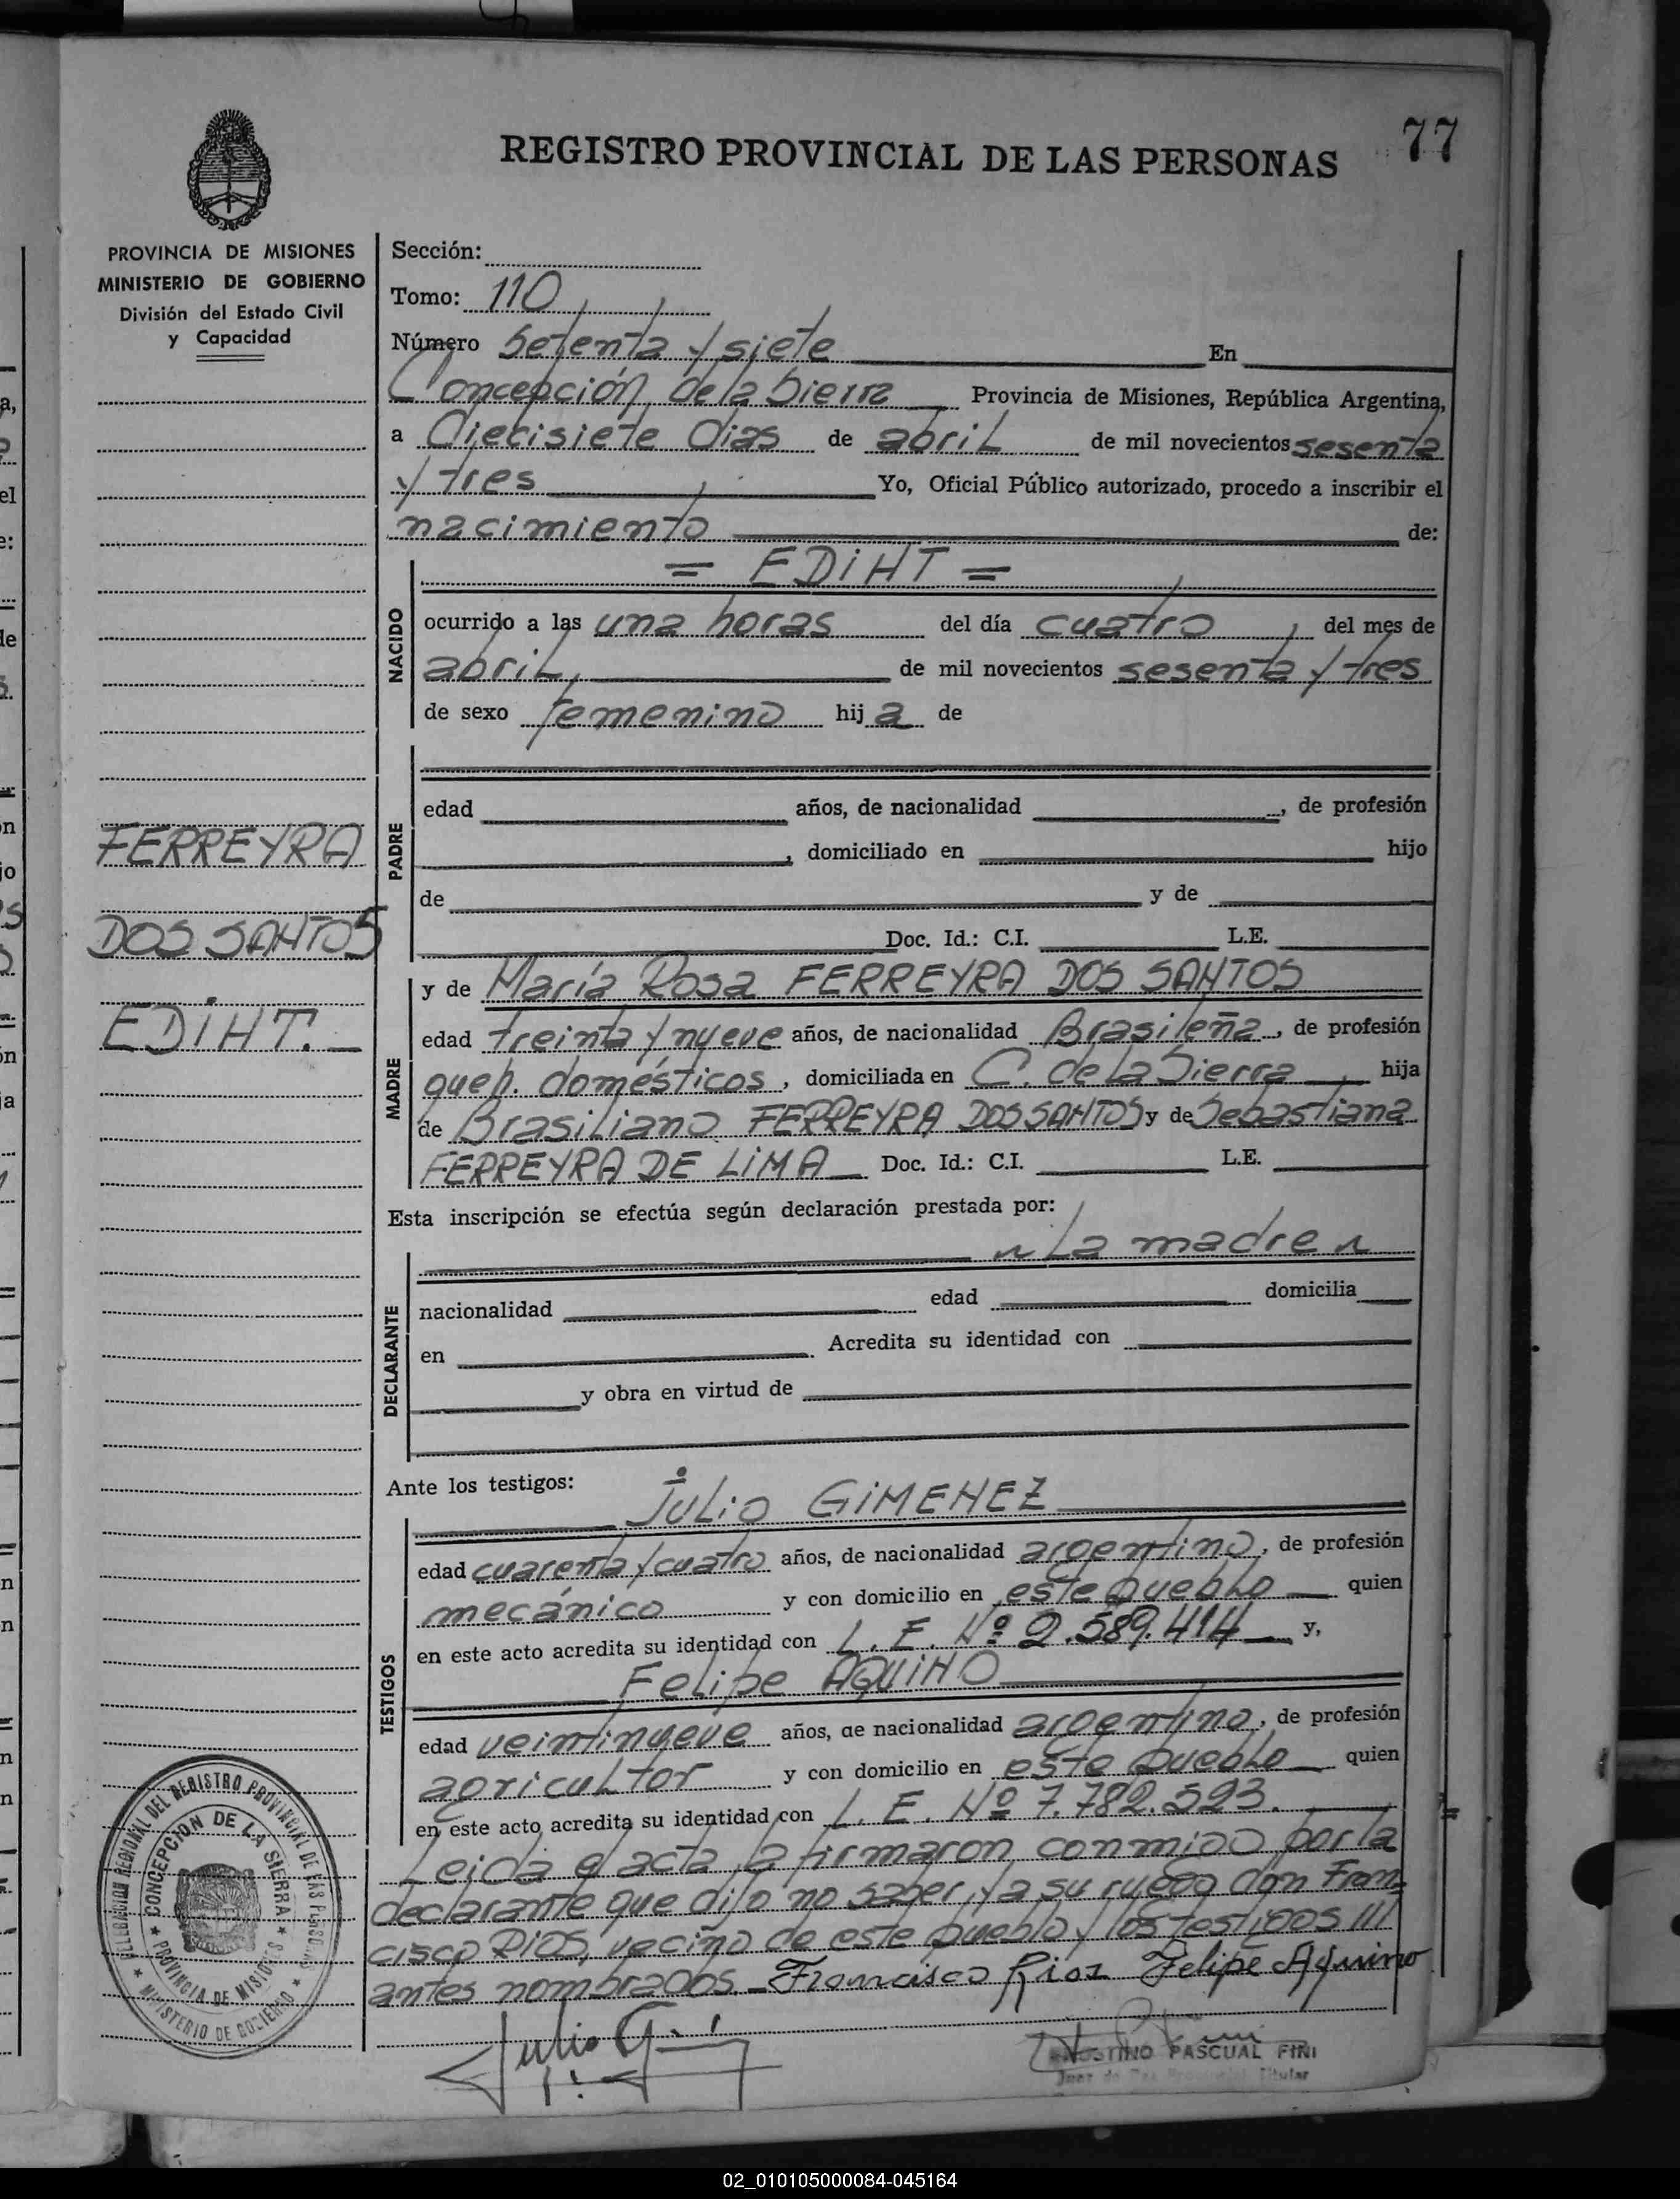 REGISTRO PROVINCIAL DE LAS PERSONAS 77
PROVINCIA DE MISIONES
MINISTERIO DE GOBIERNO
División del Estado Civil
y Capacidad
Sección:
Tomo: 110
Número Setenta y siete En
Concepción de la Sierra Provincia de Misiones, República Argentina,
a Diecisiete Dias de abril de mil novecientos sesenta
y tres Yo, Oficial Público autorizado, procedo a inscribir el
nacimiento de:
= EDiHT =
NACIDO
ocurrido a las una horas del día cuatro del mes de
abril, de mil novecientos sesenta y tres
de sexo femenino hij a de
PADRE
edad años, de nacionalidad , de profesión
, domiciliado en hijo
de y de
Doc. Id.: C.I. L.E.
FERREYRA
DOS SANTOS
EDiHT.-
MADRE
y de María Rosa FERREYRA DOS SANTOS
edad treinta y nueve años, de nacionalidad Brasileña, de profesión
queh. domésticos, domiciliada en C. de la Sierra hija
de Brasiliano FERREYRA DOS SANTOS y de Sebastiana
FERREYRA DE LiMA Doc. Id.: C.I. L.E.
Esta inscripción se efectúa según declaración prestada por:
La madre
DECLARANTE
nacionalidad edad domicilia
en . Acredita su identidad con
y obra en virtud de
Ante los testigos:
Julio GiMENEZ
TESTIGOS
edad cuarenta y cuatro años, de nacionalidad argentino, de profesión
mecánico y con domicilio en este pueblo quien
en este acto acredita su identidad con L. E. Nº 2.589.414 y,
Felipe AQUiNO
edad veintinueve años, de nacionalidad argentino, de profesión
agricultor y con domicilio en este pueblo quien
en este acto acredita su identidad con L. E. Nº 7.782.523.
Leida el acta, la firmaron conmigo por la
declarante que dijo no saber, y a su ruego don Fran
cisco RiOS, vecino de este pueblo y los testigos
antes nombrados.- Francisco Rios Felipe Aquino
Julio
PASCUAL FINI
Juez de Paz Titular
REGIONAL DEL REGISTRO PROVINCIAL DE LAS PERSONAS
MINISTERIO DE GOBIERNO
CONCEPCION DE LA SIERRA
PROVINCIA DE MISIONES
02_010105000084-045164